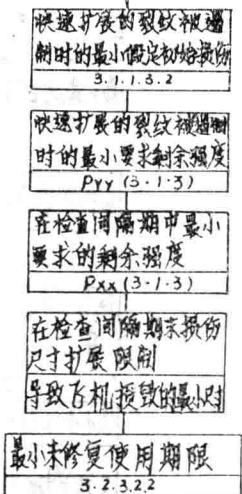 快速扩展的裂纹被遏
制时的最小假定初始损伤
3.1.1.3.2
快速扩展的裂纹被遏制
时的最小要求剩余强度
Pyy (3·1·3)
在检查间隔期中最小
要求的剩余强度
Pxx (3·1·3)
在检查间隔期末损伤
尺寸扩展限制
导致飞机损毁的最小尺寸
最小未修复使用期限
3.2.3.2.2